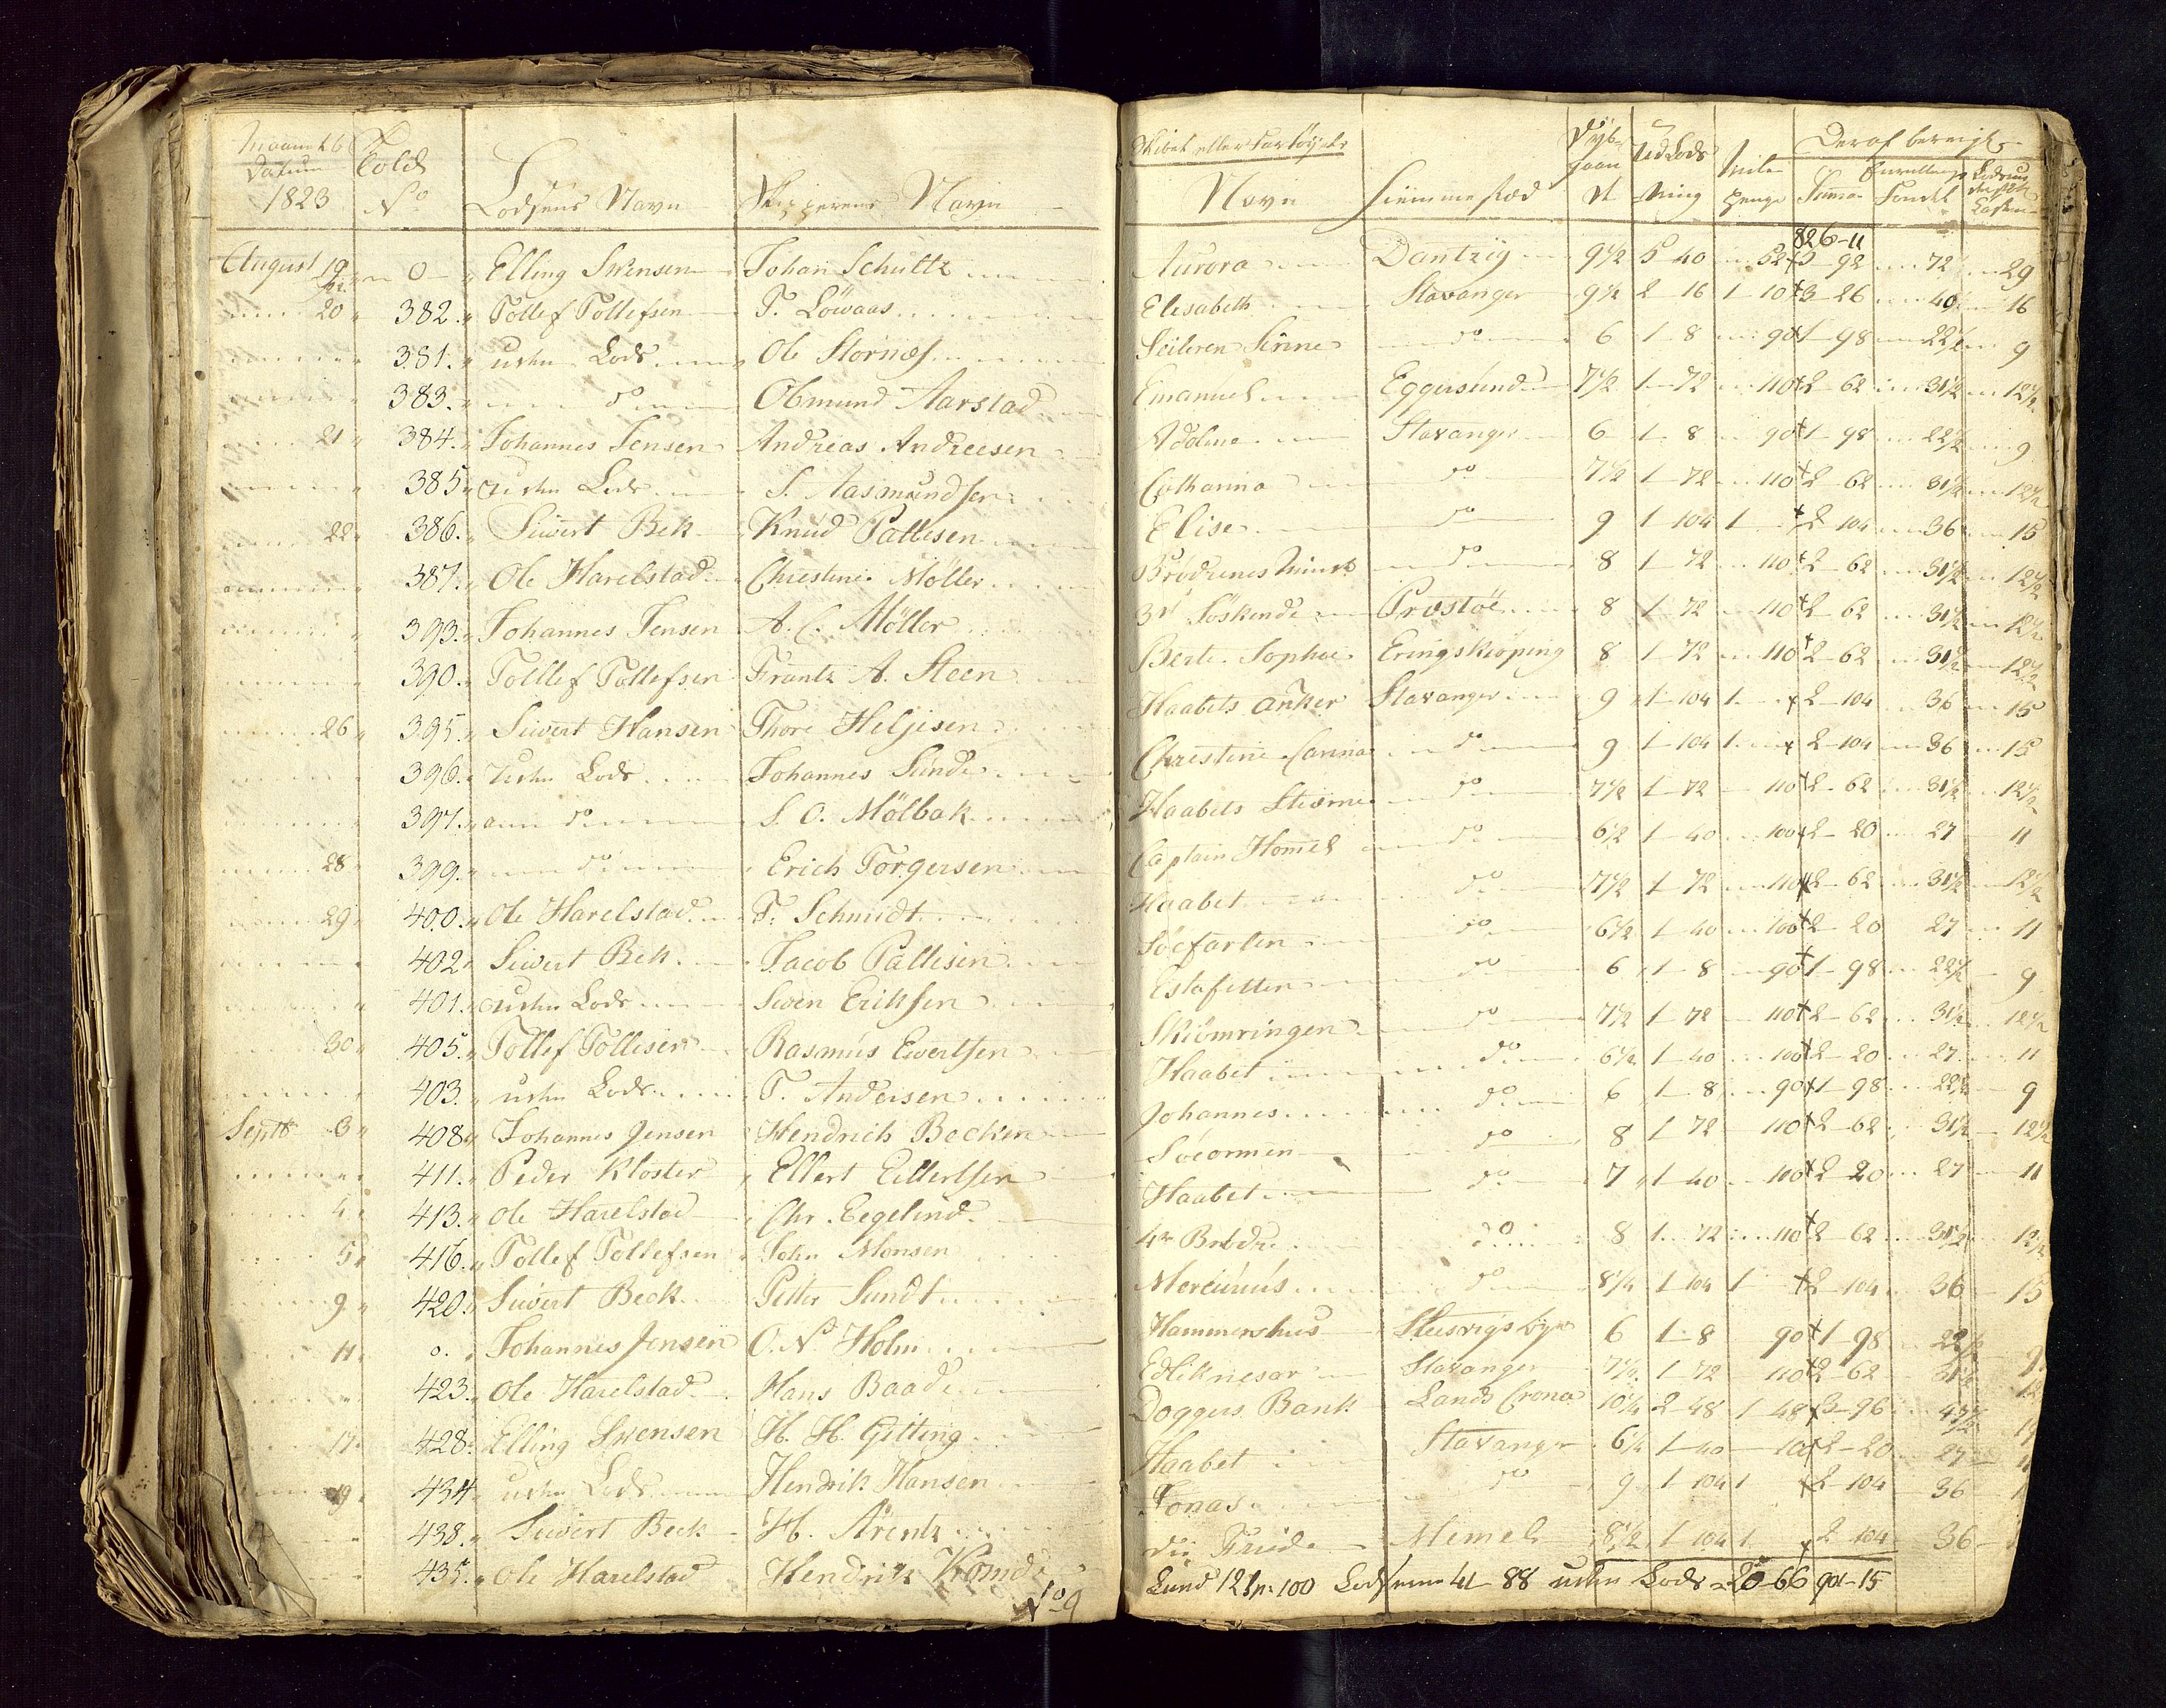 Maanets Datum 1823 | Told No | Lodsens Navn | Skipperens Navn
August 19 | 0 | Elling Svensen | Johan Schultz
20 | 382 | Tollef Tollefsen | T. Löwaas
381 | Lods | Ole Stornæs
383 | do | Obmund Aarstad
21 | 384 | Johannes Jensen | Andreas Andreesen
385 | Lods | S. Aasmundsen
22 | 386 | Siwert Bek | Knud Pallesen
387 | Ole Harelstad | Chrestine Möller
393 | Johannes Jensen | A. C. Möller
390 | Tollef Tollefsen | Frantz A. Steen
26 | 395 | Siwert Hansen | Thore Heljesen
396 | Lods | Johannes Sunde
397 | do | S. O. Mölbak
28 | 399 | do | Erich Torgersen
29 | 400 | Ole Harelstad | T. Schmidt
402 | Siwert Bek | Jacob Pallesen
401 | Lods | Swen Eriksen
30 | 405 | Tollef Tollisen | Rasmus Ewertsen
403 | Lods | T. Andersen
Septb 3 | 408 | Johannes Jensen | Hendrich Becker
411 | Peder Kloster | Ellert Ellertsen
4 | 413 | Ole Harelstad | Chr. Eegelund
5 | 416 | Tollef Tollefsen | John Monsen
9 | 420 | Siwert Beck | Petter Sundt
11 | 0 | Johannes Jensen | O. N. Holm
423 | Ole Harelstad | Hans Baade
17 | 428 | Elling Svensen | H. H. Gitting
19 | 434 | Lods | Hendrik Hansen
438 | Siwert Beck | H. Arentz
435 | Ole Harelstad | Hendrik
No 9
Skibets eller Fartöyets Navn | Hiemmestæd | Dybgaaende | Udlodsning | Mile penge | Deraf beregnet | Summa
826-11
Aurora | Dantzig | 9 1/2 | 5 40 | 52 | 5-92 | 72 | 29
Elisabeth | Stavanger | 9 1/2 | 2 16 | 1-10 | 3-26 | 40 | 16
Seileren | do | 6 | 1 8 | 90 | 1-98 | 22 1/2 | 9
Emanuel | Eggersund | 7 1/2 | 1-72 | 110 | 2-62 | 31 1/2 | 12 1/2
Adolma | Stavanger | 6 | 1 8 | 90 | 1-98 | 22 1/2 | 9
Catharina | do | 7 1/2 | 1 72 | 110 | 2-62 | 31 1/2 | 12 1/2
Elise | do | 9 | 1 104 | 1 | 2 104 | 36 | 15
Brødrenes Minde | do | 8 | 1 72 | 110 | 2-62 | 31 1/2 | 12 1/2
3de Söskende | Præstöe | 8 | 1-72 | 110 | 2-62 | 31 1/2 | 12 1/2
Berte Sophie | Eringskiöping | 8 | 1 72 | 110 | 2-62 | 31 1/2 | 12 1/2
Haabets Anker | Stavanger | 9 | 1-104 | 1 | 2-104 | 36 | 15
Christine Carina | do | 9 | 1-104 | 1 | 2-104 | 36 | 15
Haabets Stierne | do | 7 1/2 | 1-72 | 110 | 2-62 | 31 1/2 | 12 1/2
Captain Homel | do | 6 1/2 | 1-40 | 100 | 2-20 | 27 | 11
Haabet | do | 7 1/2 | 1-72 | 110 | 2-62 | 31 1/2 | 12 1/2
Söefarten | do | 6 1/2 | 1 40 | 100 | 2 20 | 27 | 11
Estafetten | do | 6 | 1-8 | 90 | 1-98 | 22 1/2 | 9
Skiömringen | do | 7 1/2 | 1-72 | 110 | 2-62 | 31 1/2 | 12 1/2
Haabet | do | 6 1/2 | 1-40 | 100 | 2-20 | 27 | 11
Johannes | do | 6 | 1-8 | 90 | 1-98 | 22 1/2 | 9
Söeormen | do | 8 | 1 72 | 110 | 2-62 | 31 1/2 | 12 1/2
Haabet | do | 7 | 1-40 | 100 | 2 20 | 27 | 11
4re Brødre | do | 8 | 1 72 | 110 | 2 62 | 31 1/2 | 12 1/2
Mercurius | do | 8 1/4 | 1 104 | 1 | 2-104 | 36 | 15
Hammershus | 6 | 1-8 | 90 | 1-98 | 22 1/2 | 9
Stavanger | 7 1/2 | 1-72 | 110 | 2-62 | 31 1/2 | 12
Doggers Bank | Lands Crona | 10 1/4 | 2-48 | 1 48 | 3-96 | 19
Haabet | Stavanger | 6 1/4 | 1-40 | 100 | 2-20 | 27
Jonas | do | 9 | 1 104 | 1 | 2 104 | 36
Die Friede | Memel | 8 1/2 | 1 104 | 1 | 2 104 | 36
Lund 100 Lodsene 41 88 Lods 20-66 901-15